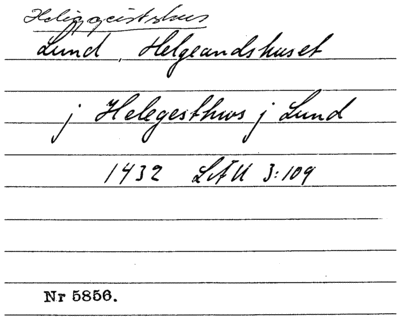 Heliggeistshus
Lund, Helgeandshuset
j Helegesthws j Lund
1432 LÄU 3:109
Nr 5856.